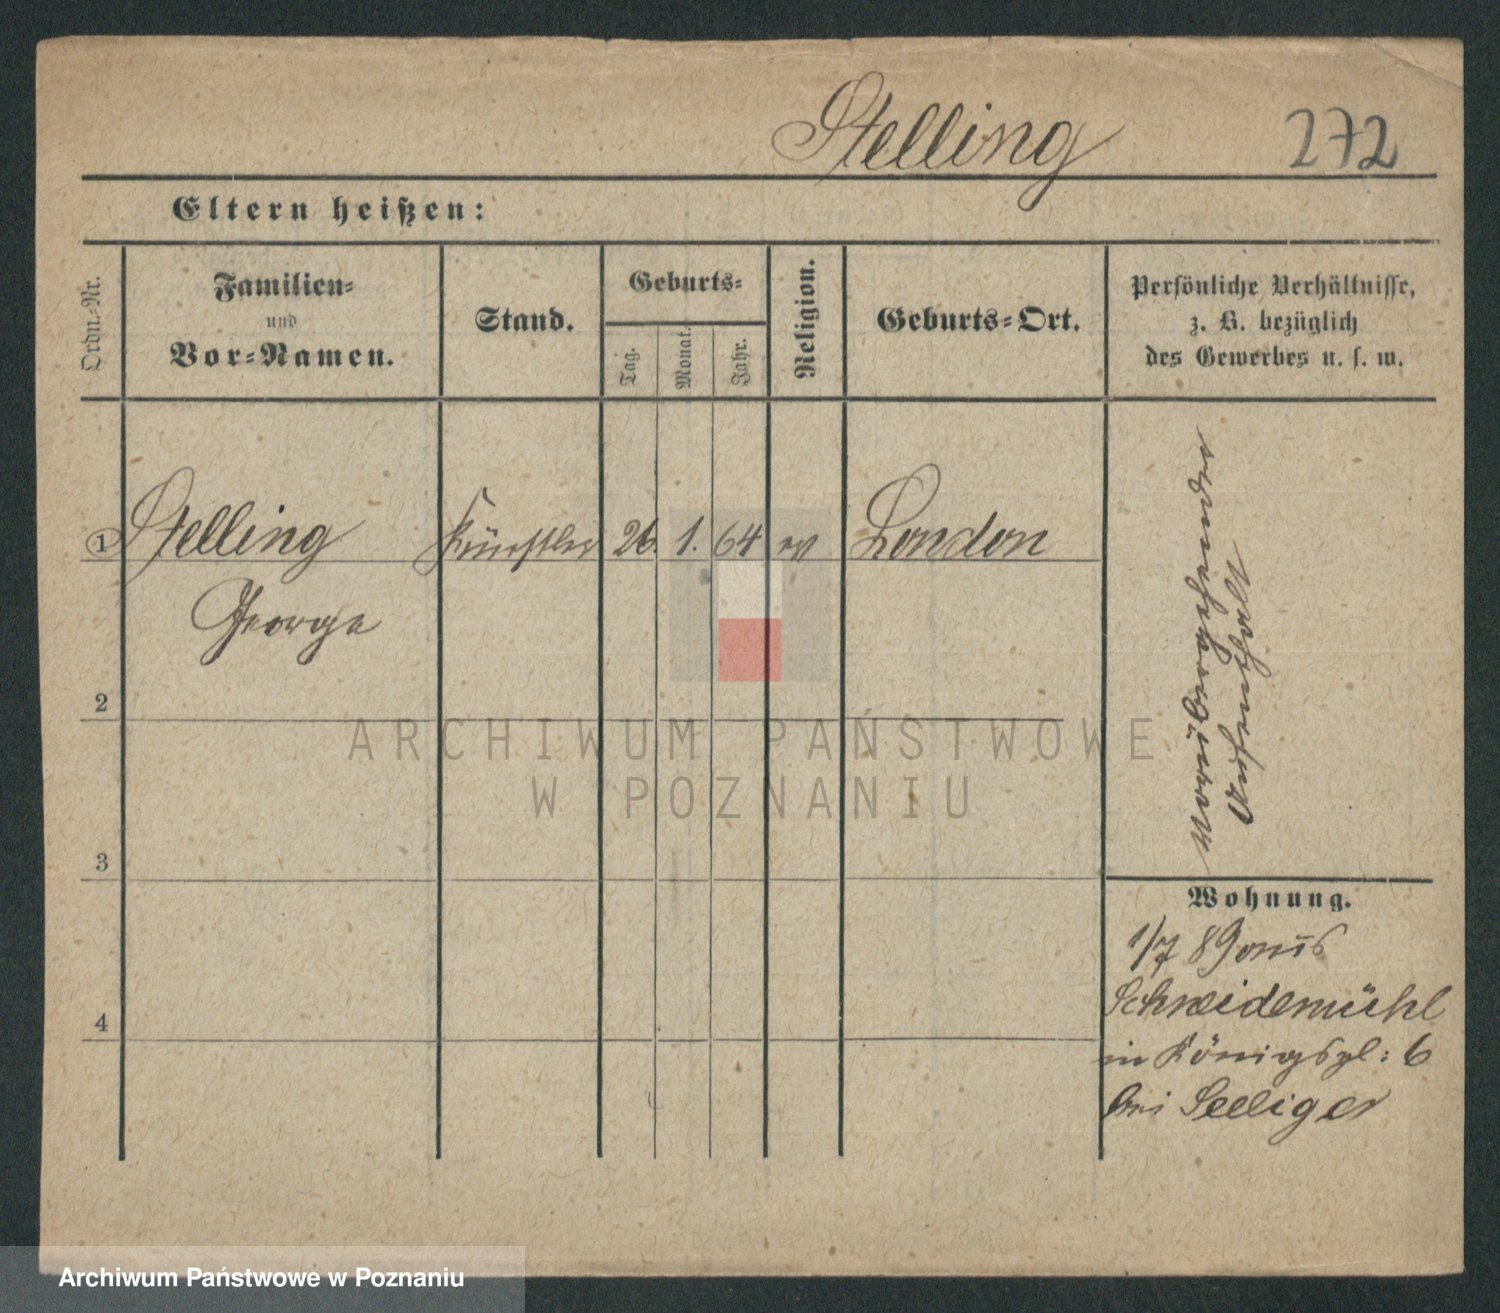 Stelling 272
Eltern heißen:
Ordn.-Nr.
Familien-
und
Vor-Namen.
Stand.
Geburts-
Tag.
Monat.
Jahr.
Religion.
Geburts-Ort.
Persönliche Verhältnisse,
z. B. bezüglich
des Gewerbes u. s. w.
1 Stelling Künstler 26. 1. 64 ev London
George
2
3
4
vorübergehender
Aufenthalt
Wohnung.
1/7 89 aus
Schneidemühl
in Königspl: 6
bei Seeliger
ARCHIWUM PAŃSTWOWE
W POZNANIU
Archiwum Państwowe w Poznaniu